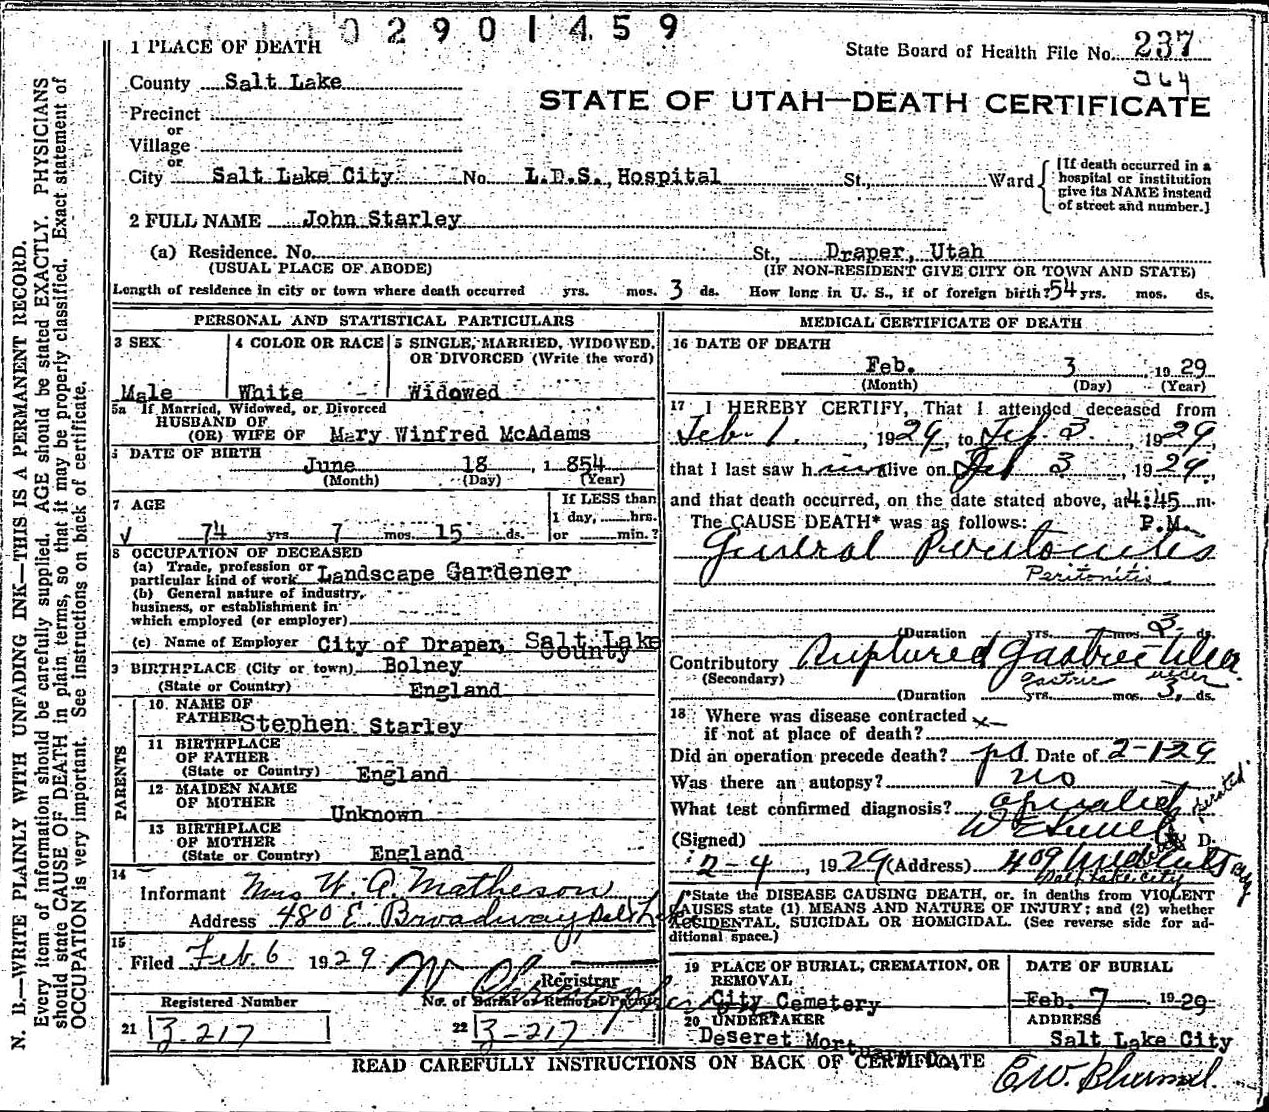 0 2 9 0 1 4 5 9
1 PLACE OF DEATH
State Board of Health File No. 237
264
County Salt Lake
STATE OF UTAH—DEATH CERTIFICATE
Precinct
or
Village
or
City Salt Lake City No. L.D.S. Hospital St., Ward
[If death occurred in a
hospital or institution
give its NAME instead
of street and number.]
2 FULL NAME John Starley
(a) Residence. No. St., Draper, Utah
(USUAL PLACE OF ABODE) (IF NON-RESIDENT GIVE CITY OR TOWN AND STATE)
Length of residence in city or town where death occurred yrs. mos. 3 ds. How long in U. S., if of foreign birth? 54 yrs. mos. ds.
PERSONAL AND STATISTICAL PARTICULARS
3 SEX
Male
4 COLOR OR RACE
White
5 SINGLE, MARRIED, WIDOWED,
OR DIVORCED (Write the word)
Widowed
5a If Married, Widowed, or Divorced
HUSBAND OF
(OR) WIFE OF Mary Winfred McAdams
6 DATE OF BIRTH
June 18, 1854
(Month) (Day) (Year)
7 AGE
74 yrs. 7 mos. 15 ds.
If LESS than
1 day, hrs.
or min.?
8 OCCUPATION OF DECEASED
(a) Trade, profession or
particular kind of work Landscape Gardener
(b) General nature of industry,
business, or establishment in
which employed (or employer)
(c) Name of Employer City of Draper, Salt Lake
County
9 BIRTHPLACE (City or town) Bolney
(State or Country) England
PARENTS
10. NAME OF
FATHER Stephen Starley
11 BIRTHPLACE
OF FATHER
(State or Country) England
12 MAIDEN NAME
OF MOTHER
Unknown
13 BIRTHPLACE
OF MOTHER
(State or Country) England
14
Informant Mrs W. A. Matheson
Address 480 E. Broadway
15
Filed Feb. 6 1929
Registrar
Registered Number No. of Burial or Removal Permit
21 3-217 22 3-217
MEDICAL CERTIFICATE OF DEATH
16 DATE OF DEATH
Feb. 3 1929
(Month) (Day) (Year)
17 I HEREBY CERTIFY, That I attended deceased from
Feb. 1, 1929, to Feb. 3, 1929,
that I last saw him alive on Feb 3, 1929,
and that death occurred, on the date stated above, at 4:45 m.
The CAUSE DEATH* was as follows: P.M.
General Peritonitis
Peritonitis
(Duration yrs. mos. 3 ds.
Contributory Ruptured Gastric Ulcer
(Secondary) gastric ulcer
(Duration yrs. mos. 3 ds.
18 Where was disease contracted
if not at place of death? x—
Did an operation precede death? Date of 2-1-29
Was there an autopsy? no
What test confirmed diagnosis?
(Signed) D.
2-4, 1929 (Address) 409
Salt Lake City
*State the DISEASE CAUSING DEATH, or, in deaths from VIOLENT
CAUSES state (1) MEANS AND NATURE OF INJURY; and (2) whether
ACCIDENTAL, SUICIDAL OR HOMICIDAL. (See reverse side for ad-
ditional space.)
19 PLACE OF BURIAL, CREMATION, OR
REMOVAL
City Cemetery
DATE OF BURIAL
Feb. 7 1929
20 UNDERTAKER
Deseret Mortuary Co.
ADDRESS
Salt Lake City
READ CAREFULLY INSTRUCTIONS ON BACK OF CERTIFICATE
N. B.—WRITE PLAINLY WITH UNFADING INK—THIS IS A PERMANENT RECORD.
Every item of information should be carefully supplied. AGE should be stated EXACTLY. PHYSICIANS
should state CAUSE OF DEATH in plain terms, so that it may be properly classified. Exact statement of
OCCUPATION is very important. See instructions on back of certificate.